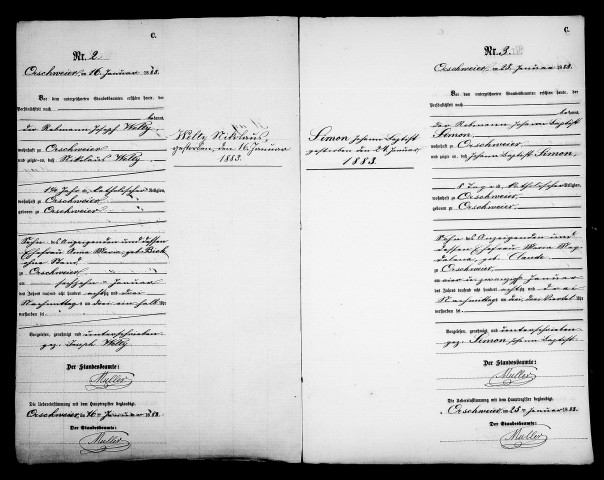 C.
Nr. 2
Orschweier, am 16. Januar 1883.
Vor dem unterzeichneten Standesbeamten erschien heute, der
Persönlichkeit nach
bekannt,
der Rebmann Joseph Welty
wohnhaft zu Orschweier
und zeigte an, daß Nikolaus Welty
1¾ Jahr a. katholischer Religion,
wohnhaft zu Orschweier
geboren zu Orschweier
Sohn des Anzeigenden und dessen
Ehefrau Anna Maria geb.
ohne Stand,
zu Orschweier
am sechzehn ten Januar
des Jahres tausend acht hundert achtzig und drei
Nachmittags um drei ein halb Uhr
verstorben sei
Vorgelesen, genehmigt und unterschrieben
gez. Joseph Welty
Der Standesbeamte:
Muller
Die Uebereinstimmung mit dem Hauptregister beglaubigt.
Orschweier am 16 ten Januar 1883.
Der Standesbeamte:
Muller
Welty Nikolaus
gestorben, den 16. Januar
1883.
Simon Johann Baptist
gestorben den 24. Januar,
1883.
C.
Nr. 3.
Orschweier, am 25. Januar 1883.
Vor dem unterzeichneten Standesbeamten erschien heute, der
Persönlichkeit nach
bekannt,
der Rebmann Johann Baptist
Simon,
wohnhaft zu Orschweier
und zeigte an, daß Johann Baptist Simon,
8 Tage a. katholischer Religion,
wohnhaft zu Orschweier,
geboren zu Orschweier,
Sohn des Anzeigenden und
dessen Ehefrau Maria Mag
dalena, geb. Claude
zu Orschweier,
am vier und zwanzigsten Januar
des Jahres tausend acht hundert achtzig und drei
Nachmittags um drei Viertel Uhr
verstorben sei
Vorgelesen, genehmigt und unterschrieben
gez. Simon Johann Baptist
Der Standesbeamte:
Muller
Die Uebereinstimmung mit dem Hauptregister beglaubigt.
Orschweier am 25 ten Januar 1883.
Der Standesbeamte:
Muller